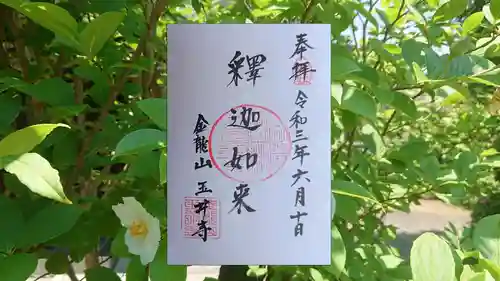 奉拝
令和三年六月十日
釋迦如来
金龍山
玉井寺